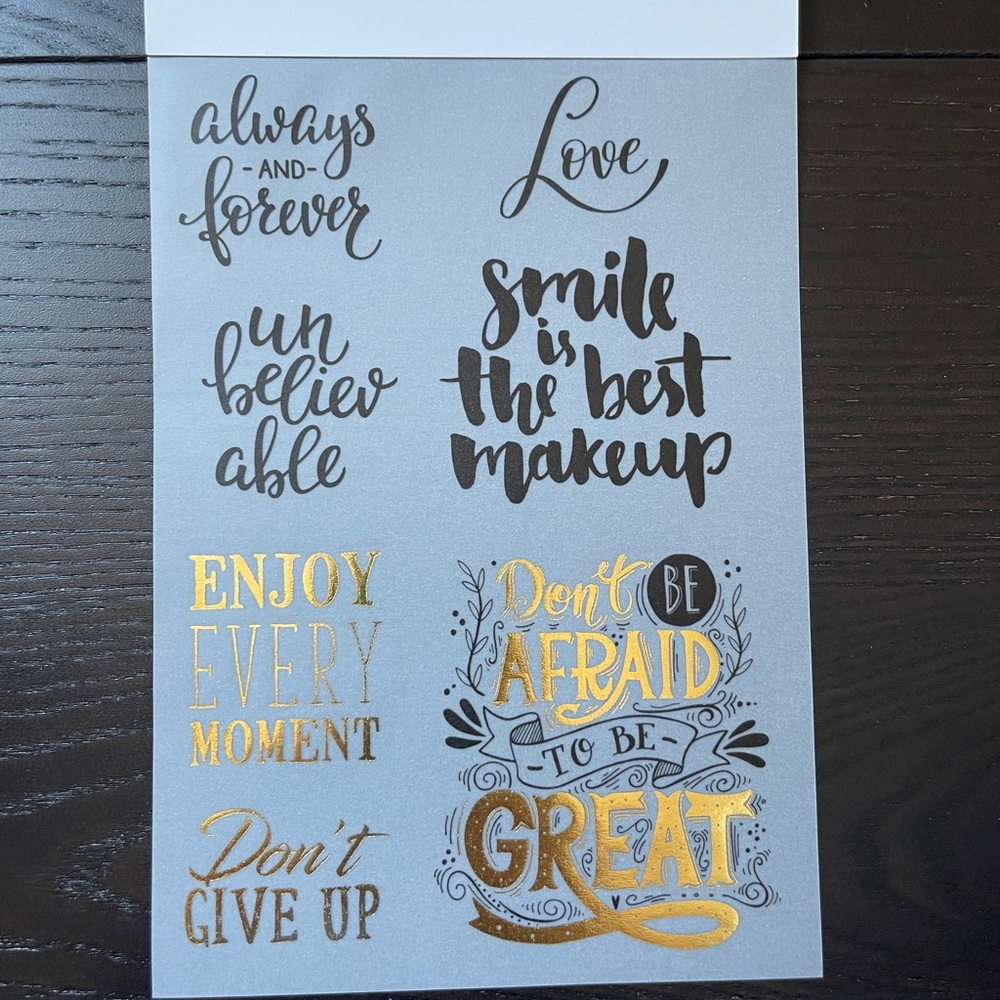 always
-AND-
forever
Love
un
believ
able
smile
is
the best
makeup
ENJOY
EVERY
MOMENT
Don't BE
AFRAID
-TO BE-
GREAT
Don't
GIVE UP